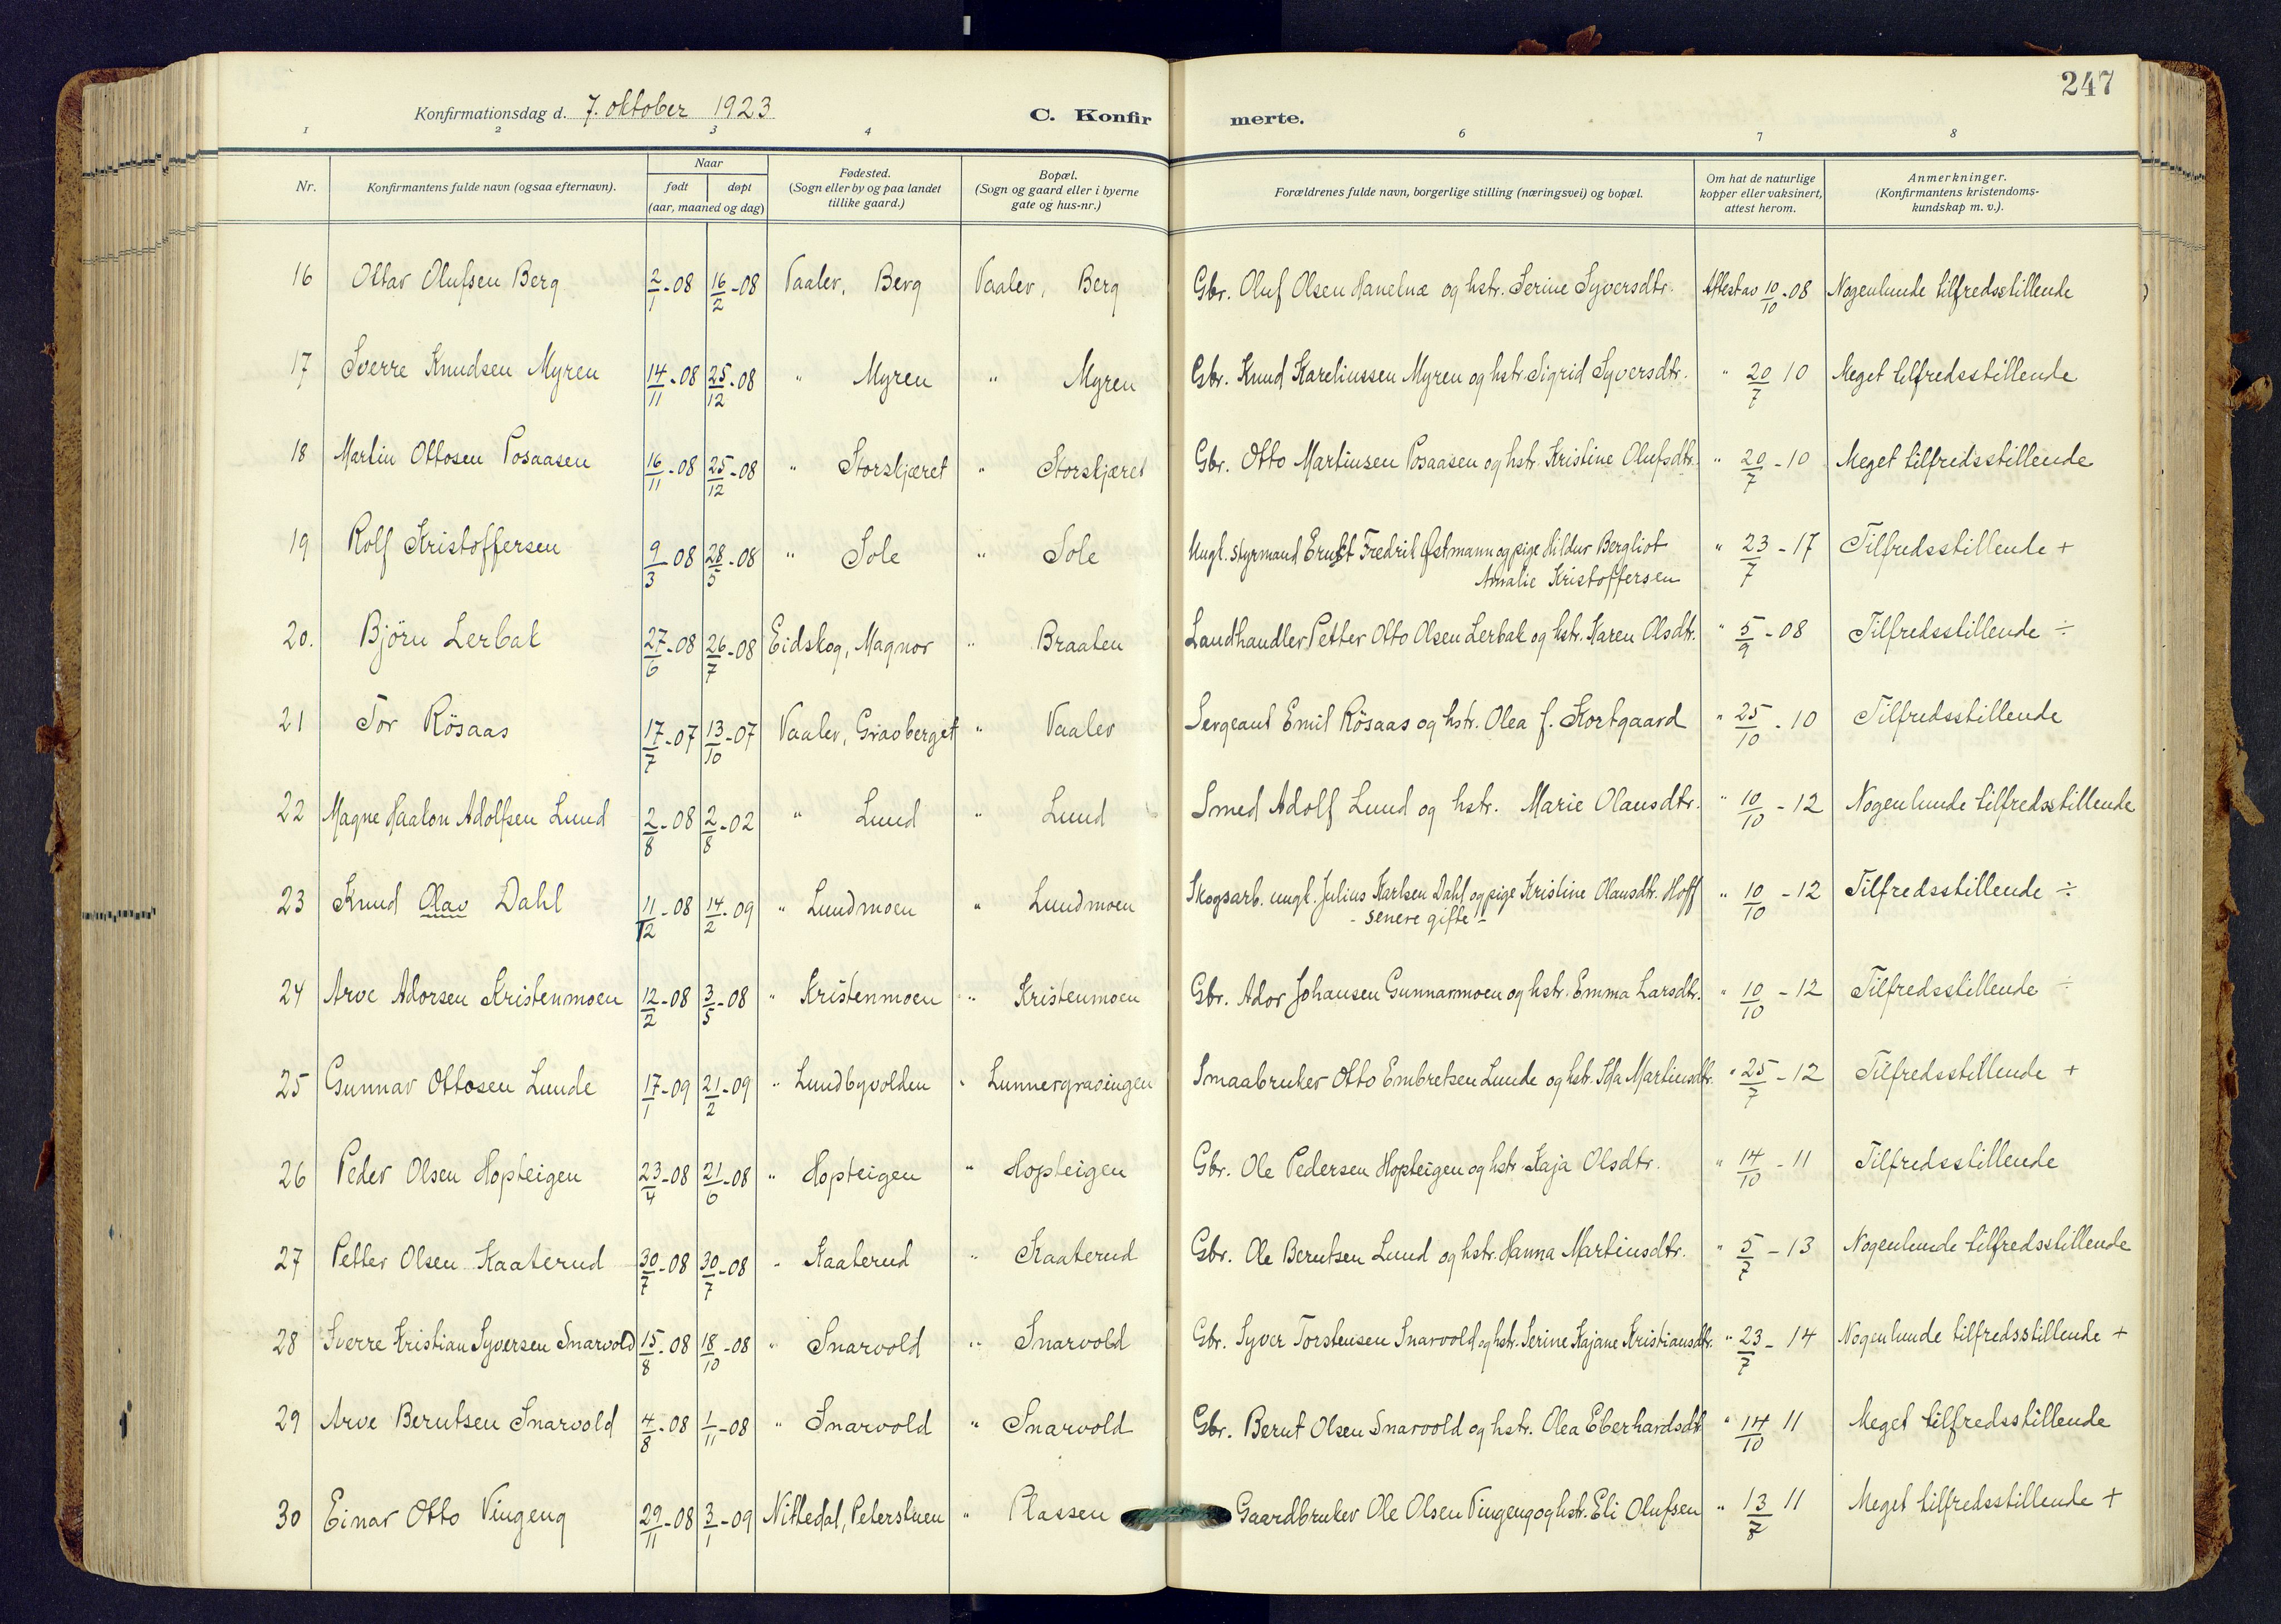 247
Konfirmationsdag d. 7. oktober 1923
C. Konfirmerte.
1 2 3 4 6 7 8
Nr. Konfirmantens fulde navn (ogsaa efternavn). Naar født døpt (aar, maaned og dag) Fødested. (Sogn eller by og paa landet tillike gaard.) Bopæl. (Sogn og gaard eller i byerne gate og hus-nr.) Forældrenes fulde navn, borgerlige stilling (næringsvei) og bopæl. Om hat de naturlige kopper eller vaksinert, attest herom. Anmerkninger. (Konfirmantens kristendoms-kundskap m. v.).
16 Ottar Olufsen Berg 2/1-08 16/2-08 Vaaler, Berg Vaaler, Berg Gbr. Oluf Olsen Hanelnæ og hstr. Serine Syversdtr. Attest av 10/10-08 Nogenlunde tilfredsstillende
17 Sverre Knudsen Myren 14/11-08 25/12-08 " Myren " Myren Gbr. Knud Kareliussen Myren og hstr. Sigrid Syversdtr. " 20/7 10 Meget tilfredsstillende
18 Martin Ottosen Posaasen 16/11-08 25/12-08 " Storskjæret " Storskjæret Gbr. Otto Martinsen Posaasen og hstr. Kristine Olufsdtr. " 20/7-10 Meget tilfredsstillende
19 Rolf Kristoffersen 9/3-08 28/5-08 " Sole " Sole Ungk. Styrmand Ernst Fredrik Østmann og pige Hildur Bergliot " 23/7-17 Tilfredsstillende +
Amalie Kristoffersen
20. Björn Lerbak 27/6-08 26/7-08 Eidskog, Magnor " Braaten Landhandler Petter Otto Olsen Lerbak og hstr. Karen Olsdtr. " 5/9-08 Tilfredsstillende ÷
21 Tor Rösaas 17/7-07 13/10-07 Vaaler, Graaberget " Vaaler Sergeant Emil Rösaas og hstr. Olea f. Kortgaard " 25/10-10 Tilfredsstillende
22 Magne Haakon Adolfsen Lund 2/8-08 2/8-02 " Lund " Lund Smed Adolf Lund og hstr. Marie Olausdtr. " 10/10-12 Nogenlunde tilfredsstillende
23 Knud Olav Dahl 11/12-08 14/2-09 " Lundmoen " Lundmoen Skogsarb. ungk. Julius Karlsen Dahl og pige Kristine Olausdtr. Hoff " 10/10-12 Tilfredsstillende ÷
- senere gifte -
24 Arve Adorsen Kristenmoen 12/2-08 3/5-08 " Kristenmoen " Kristenmoen Gbr. Ador Johansen Gunnarmoen og hstr. Emma Larsdtr. " 10/10-12 Tilfredsstillende ÷
25 Gunnar Ottosen Lunde 17/1-09 21/2-09 " Lundbyvolden " Lunnergravingen Smaabruker Otto Embretsen Lunde og hstr. Ida Martinsdtr. " 25/7-12 Tilfredsstillende +
26 Peder Olsen Hopteigen 23/4-08 21/6-08 " Hopteigen " Hopteigen Gbr. Ole Pedersen Hopteigen og hstr. Kaja Olsdtr. " 14/10-11 Tilfredsstillende
27 Petter Olsen Kaaterud 30/7-08 30/7-08 " Kaaterud " Kaaterud Gbr. Ole Berntsen Lund og hstr. Hanna Martinsdtr. " 5/7-13 Nogenlunde tilfredsstillende
28 Sverre Kristian Syversen Snarvold 15/8-08 18/10-08 " Snarvold " Snarvold Gbr. Syver Torstensen Snarvold og hstr. Serine Kajane Kristiansdtr. " 23/7-14 Nogenlunde tilfredsstillende +
29 Arve Berntsen Snarvold 4/8-08 1/11-08 " Snarvold " Snarvold Gbr. Bernt Olsen Snarvold og hstr. Olea Eberhardsdtr " 14/10 11 Meget tilfredsstillende
30 Einar Otto Vingeng 29/11-08 3/1-09 Nittedal, Peterstuen " Plassen Gaardbruker Ole Olsen Vingeng og hstr. Eli Olufsen " 13/7 11 Meget tilfredsstillende +